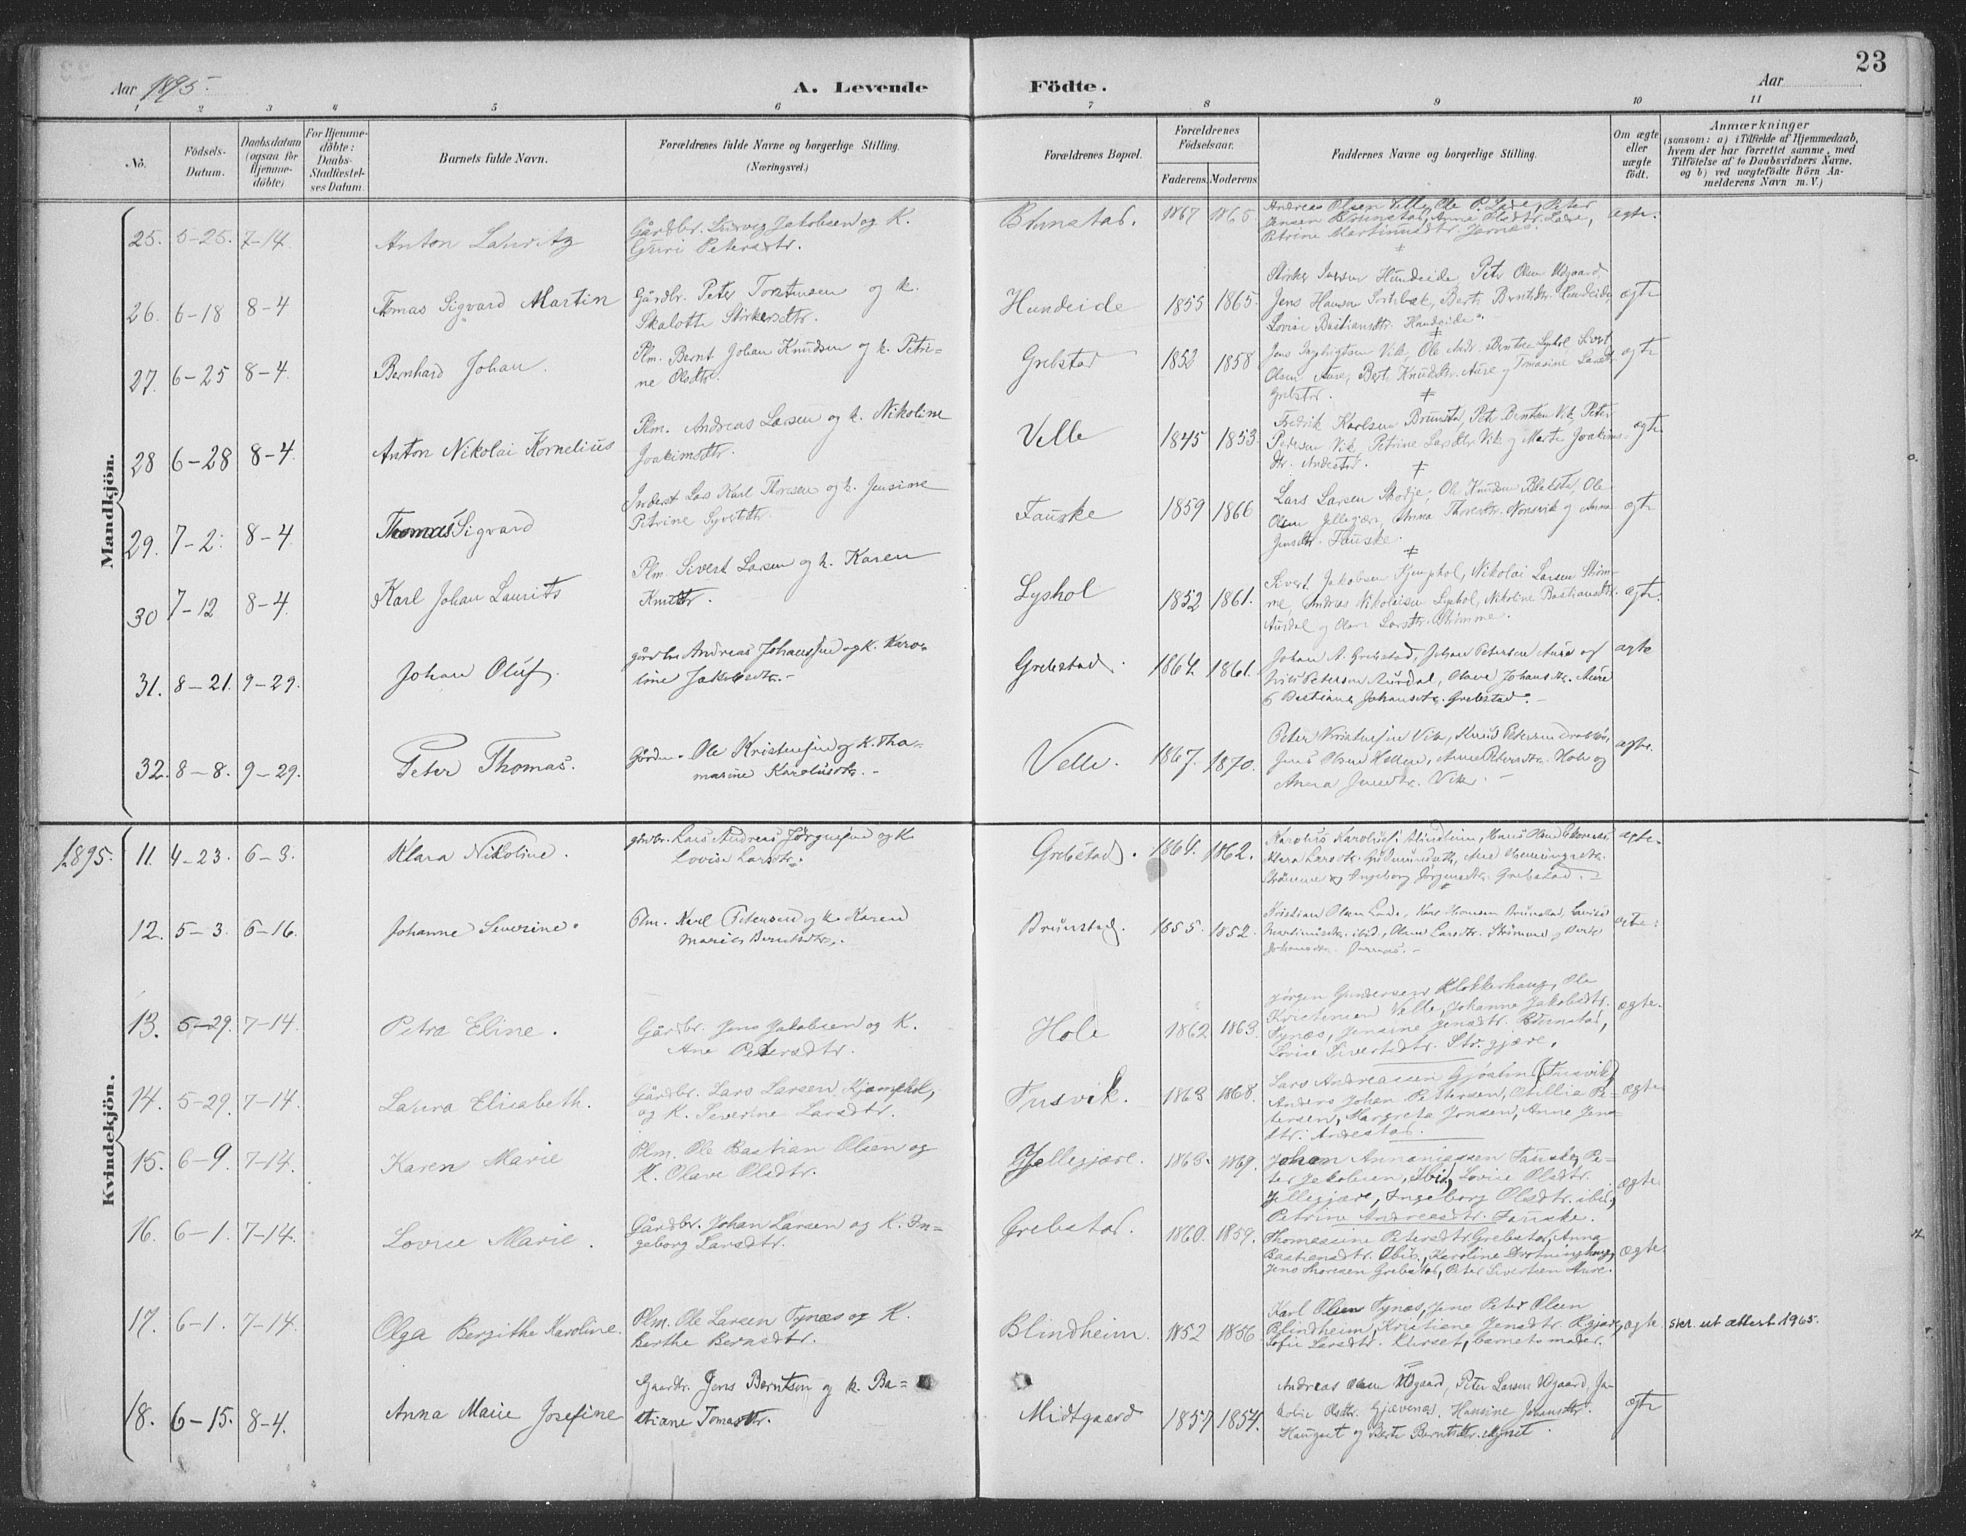 23
Aar 1895.
A. Levende Födte.
Aar
1 2 3 4 5 6 7 8 9 10 11
No.
Födsels-
Datum.
Daabsdatum
(ogsaa for
Hjemme-
döbte)
For Hjemme-
döbte:
Daabs-
Stadfæstel-
ses Datum.
Barnets fulde Navn.
Forældrenes fulde Navne og borgerlige Stilling.
(Næringsvei.)
Forældrenes Bopæl.
Forældrenes
Födselsaar.
Faderens. Moderens.
Faddernes Navne og borgerlige Stilling.
Om ægte
eller
uægte
födt.
Anmærkninger
(saasom: a) i Tilfælde af Hjemmedaab,
hvem der har forrettet samme, med
Tilföielse af to Daabsvidners Navne,
og b) ved uægtefödte Börn An-
melderens Navn m. V.)
Mandkjön.
25. 5-25. 7-14. Anton Lauritz
Gårdbr. Ludvig Jakobsen og K.
Guri Petersdtr.
Brunstad. 1867 1865.
Andreas Olsen Velle, Ole P. Lade, Peter
Jensen Brunstad, Anna Olsdtr. Lade,
Petrine Martinusdtr. Jarnæs.
ægte.
26. 6-18 8-4 Tomas Sigvard Martin
Gårdbr. Peter Torstensen og k.
Skalotte Störkersdtr.
Hundeide 1855 1865.
Störker Iversen Hundeide, Petr Olsen Udgaard,
Jens Hansen Sortebæk, Berte Berntsdtr. Hundeide
Lovise Bastiansdtr. Hundeide.
ægte
27. 6-25 8-4. Bernhard Johan.
Plm. Bernt Johan Knudsen og k. Petri-
ne Olsdtr.
Grebstad 1852 1858.
Olsen Aure, Berte Knudsdtr. Aure og Tomasine Larsdtr.
Grebstad.
ægte
28 6-28 8-4. Anton Nikolai Kornelius
Plm. Andreas Larsen og k. Nikoline
Joakimsdtr.
Velle 1845 1853.
Fredrik Karlsen Brunstad, Peter Berntsen Vik, Peter
Petersen Vik, Petrine Larsdtr. Vik og Marte Joakims-
dtr. Andestad.
ægte
29. 7-2. 8-4. Thomas Sigvard
Inderst Lars Karl Thoresen og k. Jensine
Petrine Syvertsdtr.
Fauske 1859 1866
Lars Larsen Skodje, Ole Knudsen Blakstad, Ole
Olsen Jellegjær, Thoresdtr. Nonsvik og Anna
Jensdtr. Fauske.
ægte
30 7-12 8-4. Karl Johan Laurits
Plm. Sivert Larsen og k. Karen
Knutsdtr.
Lyshol 1852 1861.
Sivert Jakobsen Kjemphol, Nikolai Larsen Strøm-
me, Andreas Nikolaisen Lyshol, Nikoline Bastiansdtr.
Aursdal og Larsdtr. Strømme.
ægte.
31. 8-21. 9-29. Johan Oluf.
gårdbr. Andreas Johanssen og K. Karo-
line Jakobsdtr.
Grebstad. 1864 1861.
Johan A. Grebstad, Johan Petersen Aure og
Nils Petersen Aursdal, Olave Johansdtr. Aure
Bastiane Johansdtr. Grebstad.
ægte
32. 8-8. 9-29. Peter Thomas.
Ole Kristensen og K. Tho-
masine Karolusdtr.
Velle. 1867. 1870.
Peter Vik, Knud Petersen
Jens Olsen Hole og
Anna Vik.
ægte.
1895.
Kvindekjön.
11. 4-23. 6-3. Klara Nikoline.
gårdbr. Lars Andreas Jörgensen og K
Lovise Larsdtr.
Grebstad. 1864. 1862.
Karolus Blindheim,
Klara Larsdtr.
Strömme og Ingeborg Jörgensdtr. Grebstad.
ægte.
12. 5-3. 6-16. Johanne Severine.
Plm. Karl Petersen og k. Karen
Marie Berntsdtr.
Brunstad. 1855. 1852.
Kristian Olsen Lade, Karl Brunstad, Lovise
Martinusdtr. ibid, Larsdtr. Strömme
Johansdtr.
ægte.
13. 5-29. 7-14. Petra Eline.
Gårdbr. Jens Jakobsen og K.
Ane Petersdtr.
Hole 1862 1863.
Jørgen Gundersen Klokkerhaug, Ole
Kristensen Velle, Johanne Jakobsdtr.
Tynæs, Jensine Jensdtr. Brunstad,
Lovise Sivertsdtr.
ægte.
14. 5-29. 7-14. Laura Elisabeth.
Gårdbr. Lars Larsen Kjæmphol,
og K. Severine Larsdtr.
Tusvik. 1863 1868.
Lars Andreassen Gjøstin (Tusvik),
Anders Johan Pettersen, Otillia Pe-
tersen, Margreta Jonsen, Anne Jens-
dtr. Andestad.
ægte
15. 6-9. 7-14. Karen Marie
Plm. Ole Bastian Olsen og
K. Olave Olsdtr.
Jellegjære. 1863. 1869.
Johan Annaniassen Fauske, Pe-
ter Jakobsen, ibid, Lovise Olsdtr.
Jellegjære, Ingeborg Olsdtr. ibid,
Petrine Andreasdtr. Fauske.
ægte.
16. 6-1. 7-14. Lovise Marie.
Gårdbr. Johan Larsen og K. In-
geborg Larsdtr.
Grebstad. 1860. 1859.
Thomassine Petersdtr. Grebstad, Anna
Bastiansdtr. ibid., Karoline Drotninghaug,
Jens Thoresen Grebstad, Peter Sivertsen Aure.
ægte.
17. 6-1. 7-14. Olga Bergithe Karoline.
Plm. Ole Larsen Tynæs og K.
Berthe Berntsdtr.
Blindheim. 1852 1856.
Karl Olsen Tynæs, Jens Peter Olsen
Blindheim, Kristiane Jensdtr.
Sofie Larsdtr. Kurset, barnets moder.
ægte. skr. ut attest 1965.
18. 6-15. 8-4. Anna Marie Josefine
Gaardbr. Jens Berntsen og k. Ba-
stiane Tomasdtr.
Midtgaard 1857 1854.
Andreas Olsen Udgaard, Peter Larsen Udgaard, Ja-
kobie Olsdtr. Gjævenes, Hansine Johansdtr.
Hauget og Berte Berntsdtr. Myset.
ægte